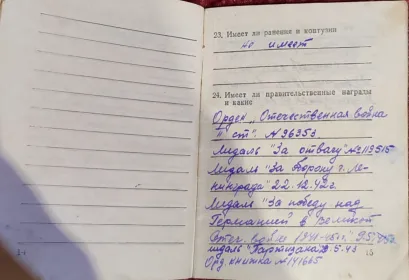 14
23. Имеет ли ранения и контузии
не имеет
24. Имеет ли правительственные награды
и какие
Орден „Отечественная война
II ст". №
Медаль "За отвагу"
Медаль "За оборону г. Ле-
нинграда" 22.12.42г.
Медаль "За победу над
Германией в Великой
Отеч войне 1941-45г."
медаль "Партизана
Орд книжка №
15